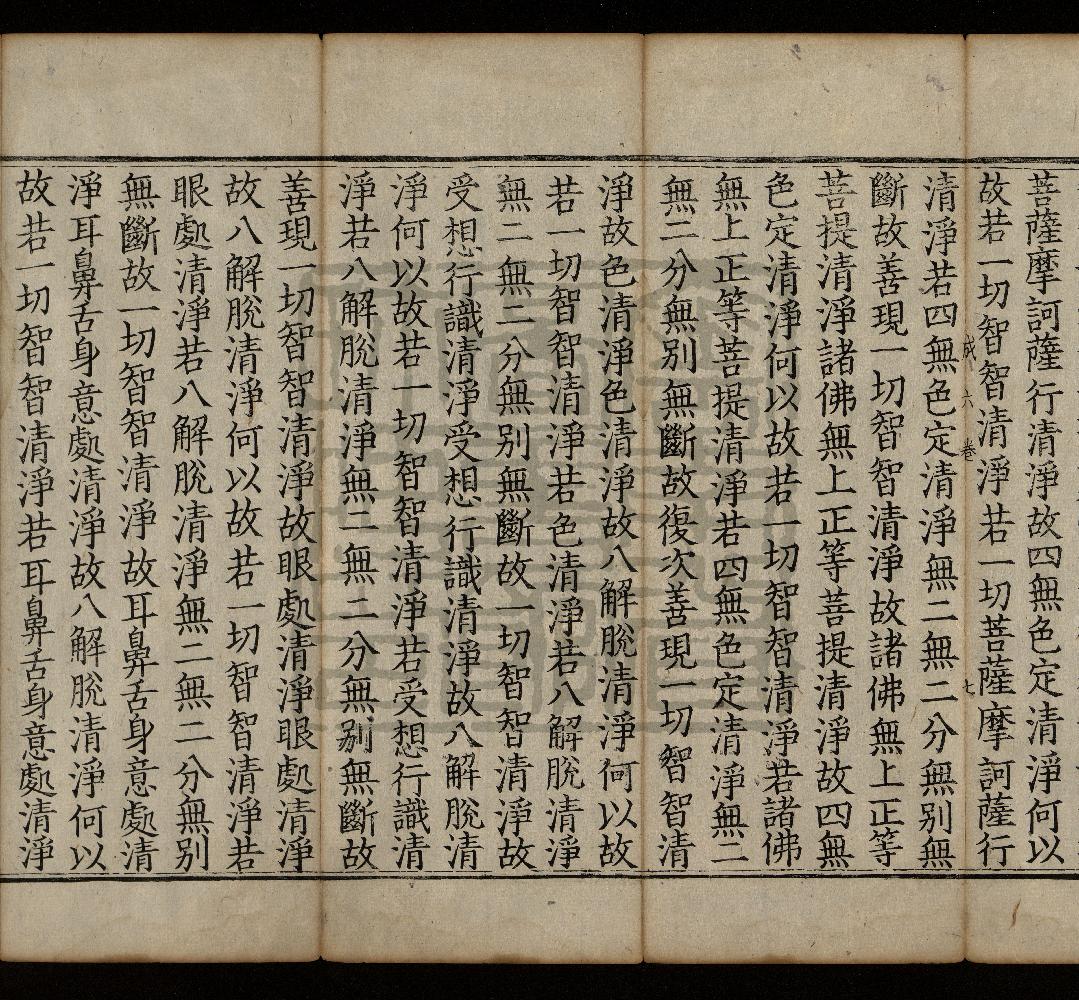 菩薩摩訶薩行清淨故四無色定清淨何以
故若一切智智清淨若一切菩薩摩訶薩行
清淨若四無色定清淨無二無二分無別無
斷故善現一切智智清淨故諸佛無上正等
菩提清淨諸佛無上正等菩提清淨故四無
色定清淨何以故若一切智智清淨若諸佛
無上正等菩提清淨若四無色定清淨無二
無二分無別無斷故復次善現一切智智清
淨故色清淨色清淨故八解脫清淨何以故
若一切智智清淨若色清淨若八解脫清淨
無二無二分無別無斷故一切智智清淨故
受想行識清淨受想行識清淨故八解脫清
淨何以故若一切智智清淨若受想行識清
淨若八解脫清淨無二無二分無別無斷故
善現一切智智清淨故眼處清淨眼處清淨
故八解脫清淨何以故若一切智智清淨若
眼處清淨若八解脫清淨無二無二分無別
無斷故一切智智清淨故耳鼻舌身意處清
淨耳鼻舌身意處清淨故八解脫清淨何以
故若一切智智清淨若耳鼻舌身意處清淨
六 卷 七